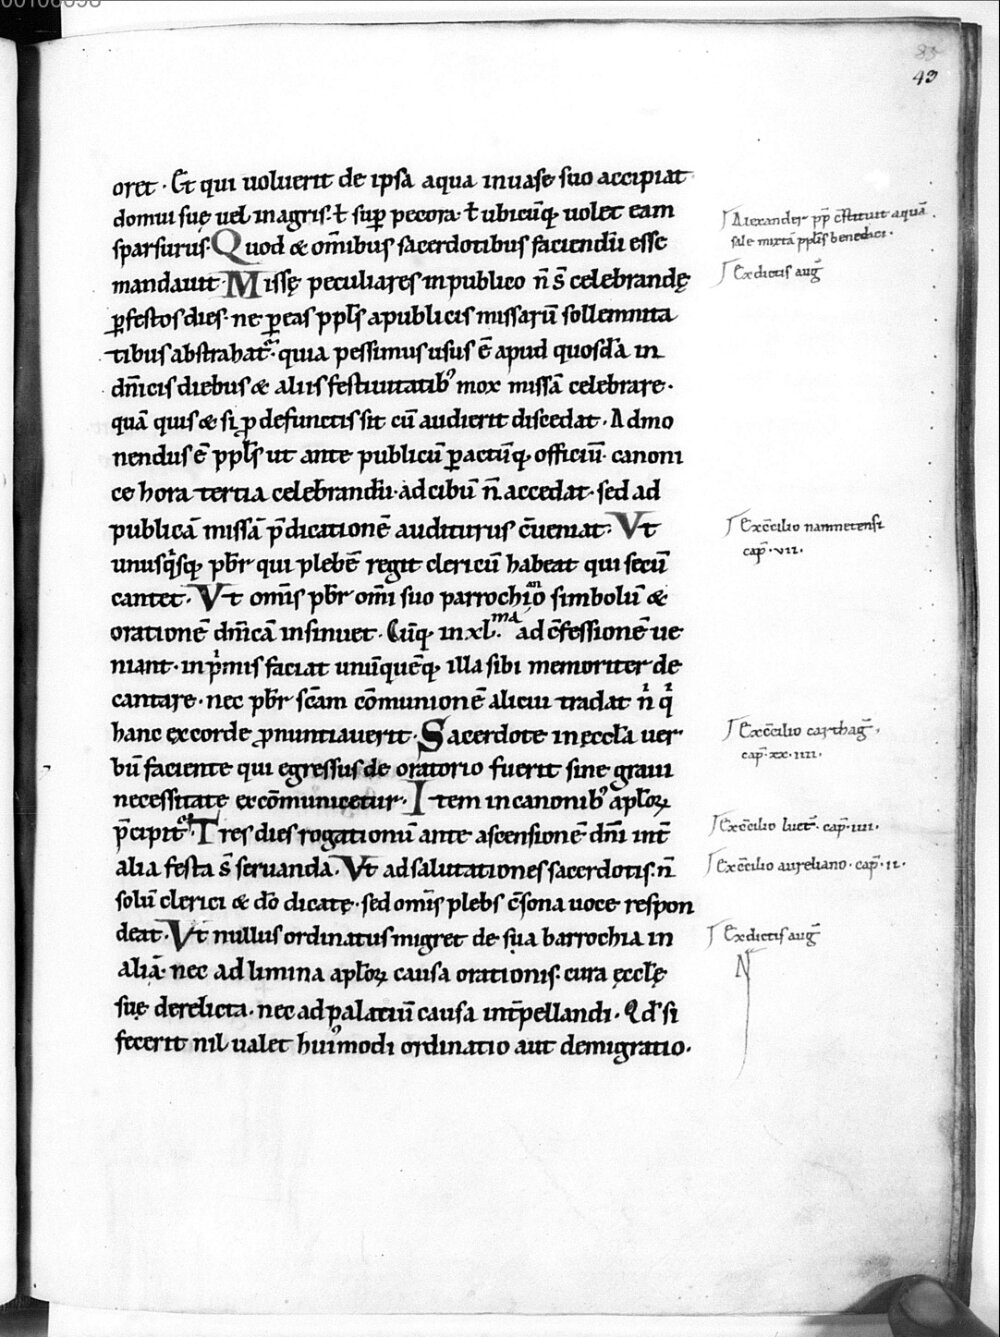 43
oret. Et qui uoluerit de ipsa aqua in uase suo accipiat
domui suę uel in agris. ł sup̱ pecora. ł ubicūq; uolet eam
sparsurus. Quod & om̄ibus sacerdotibus faciendū esse
mandauit. Missę peculiares in publico n̄ s̄ celebrandę
p̱ festos dies. ne p̱ eas ppl̄s a publicis missarū sollemnita
tibus abstrahat᷑. quia pessimus usus ē apud quosdā in
dn̄icis diebus & aliis festiuitatib; mox missā celebrare.
quā quis & si ꝓ defunctis sit cū audierit discedat. Admo
nendus ē ppl̄s ut ante publicū p̱actūq; officiū. canoni
ce hora tertia celebrandū. ad cibū n̄ accedat. sed ad
publicā missā p̄dicationē auditurus c̄ueniat. Vt
unusqͥsq; pb̄r qui plebē regit clericū habeat qui secū
cantet. Vt om̄is pb̄r om̄i suo parrochiano simbolū &
orationē dn̄icā insinuet. Cūq; in xl.ma ad c̄fessionē ue
niant. in pͥmis faciat unūquēq; illa sibi memoriter de
cantare. nec pb̄r sc̄am cōmunionē alicui tradat nͥ qͥ
hanc ex corde ꝓnuntiauerit. Sacerdote in ęccl̄a uer
bū faciente qui egressus de oratorio fuerit sine graui
necessitate excōmunicetur. Item in canonib; apl̄oꝝ
p̄cipit᷑. Tres dies rogationū ante ascensionē dn̄i int̄
alia festa s̄ seruanda. Vt ad salutationes sacerdotis. n̄
solū clerici & dō dicatę. sed om̄is plebs c̄sona uoce respon
deat. Vt nullus ordinatus migret de sua barrochia in
aliā. nec ad limina apl̄oꝝ causa orationis. cura ęccl̄ę
suę derelicta. nec ad palatiū causa int̄pellandi. Qd̄ si
fecerit nil ualet hui᷒modi ordinatio aut demigratio.
Alexander pp̄ c̄stituit aquā
sale mixtā ppl̄is benedici.
Ex dictis auḡ
Ex c̄cilio namnetensi
cap̄. vii.
Ex c̄cilio carthaḡ.
cap̄. xx. iiii.
Ex c̄cilio cap̄. iiii.
Ex c̄cilio aureliano. cap̄. ii.
Ex dictis auḡ
N